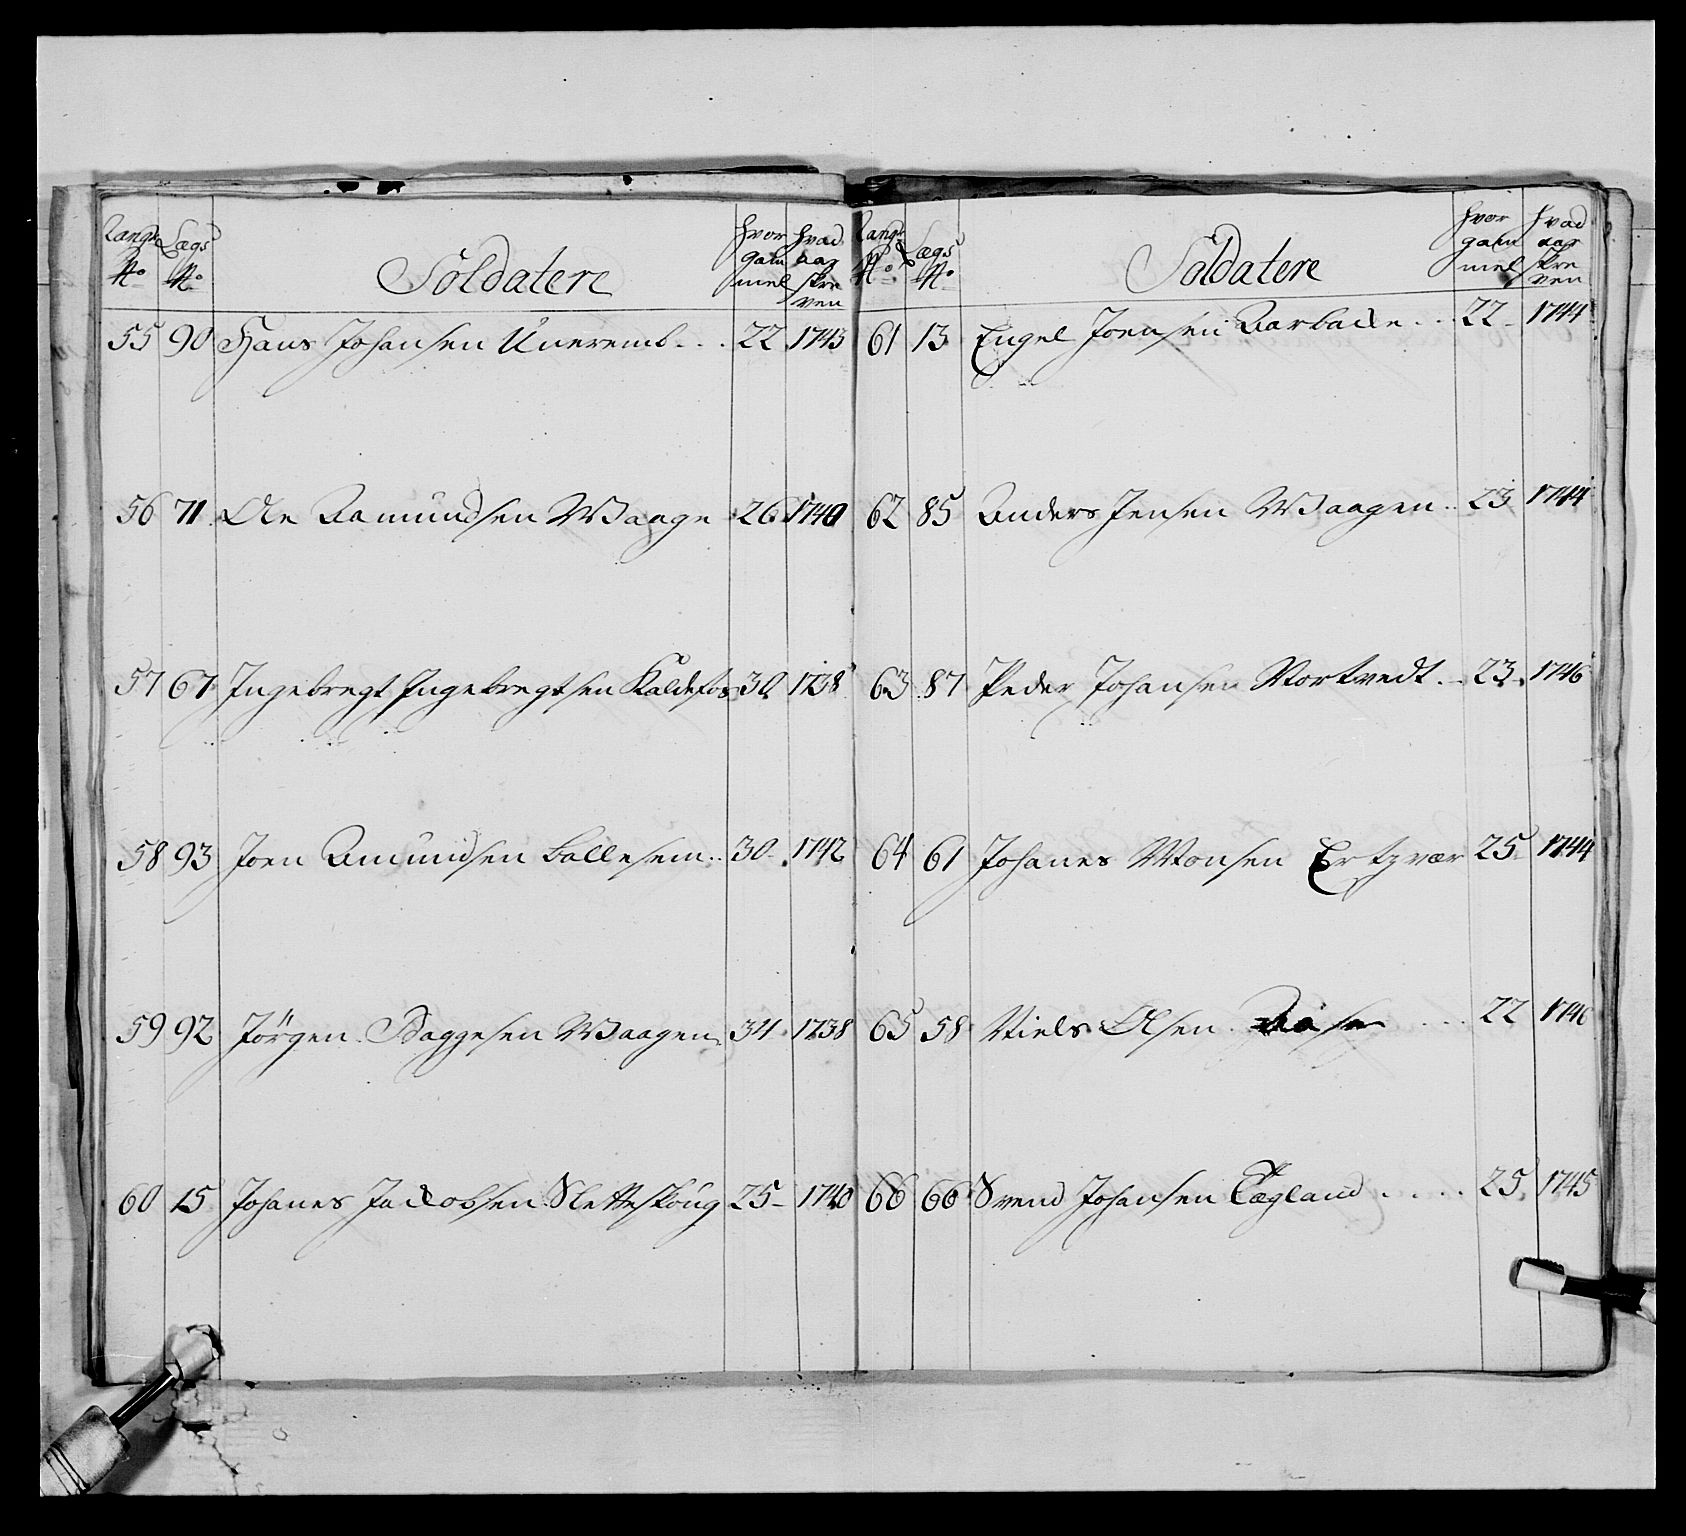 Rangs No Lægs No Soldatere hvor gam mel hvad aar skre ven
55 90 Hans Johansen Uneremb... 22 1743
56 71 Ole Aamundsen Waage 26 1740
57 67 Ingebregt Ingebregtsen Kaldefos 30 1738
58 93 Joen Amundsen Ballesem.. 30 1742
59 92 Jörgen Baggesen Waagen 34 1738
60 15 Johanes Jacobsen Sletteskoug 25 1740
Rangs No Lægs No Soldatere hvor gam mel hvad aar skre ven
61 13 Engel Joensen Aarbacke... 22 1744
62 85 Anders Jensen Waagen.. 23 1744
63 87 Peder Johansen Mortvedt.. 23 1746
64 61 Johanes Monsen Ertzvær 25 1744
65 58 Niels Olsen ... 22 1746
66 66 Svend Johansen Eægland..... 25 1745